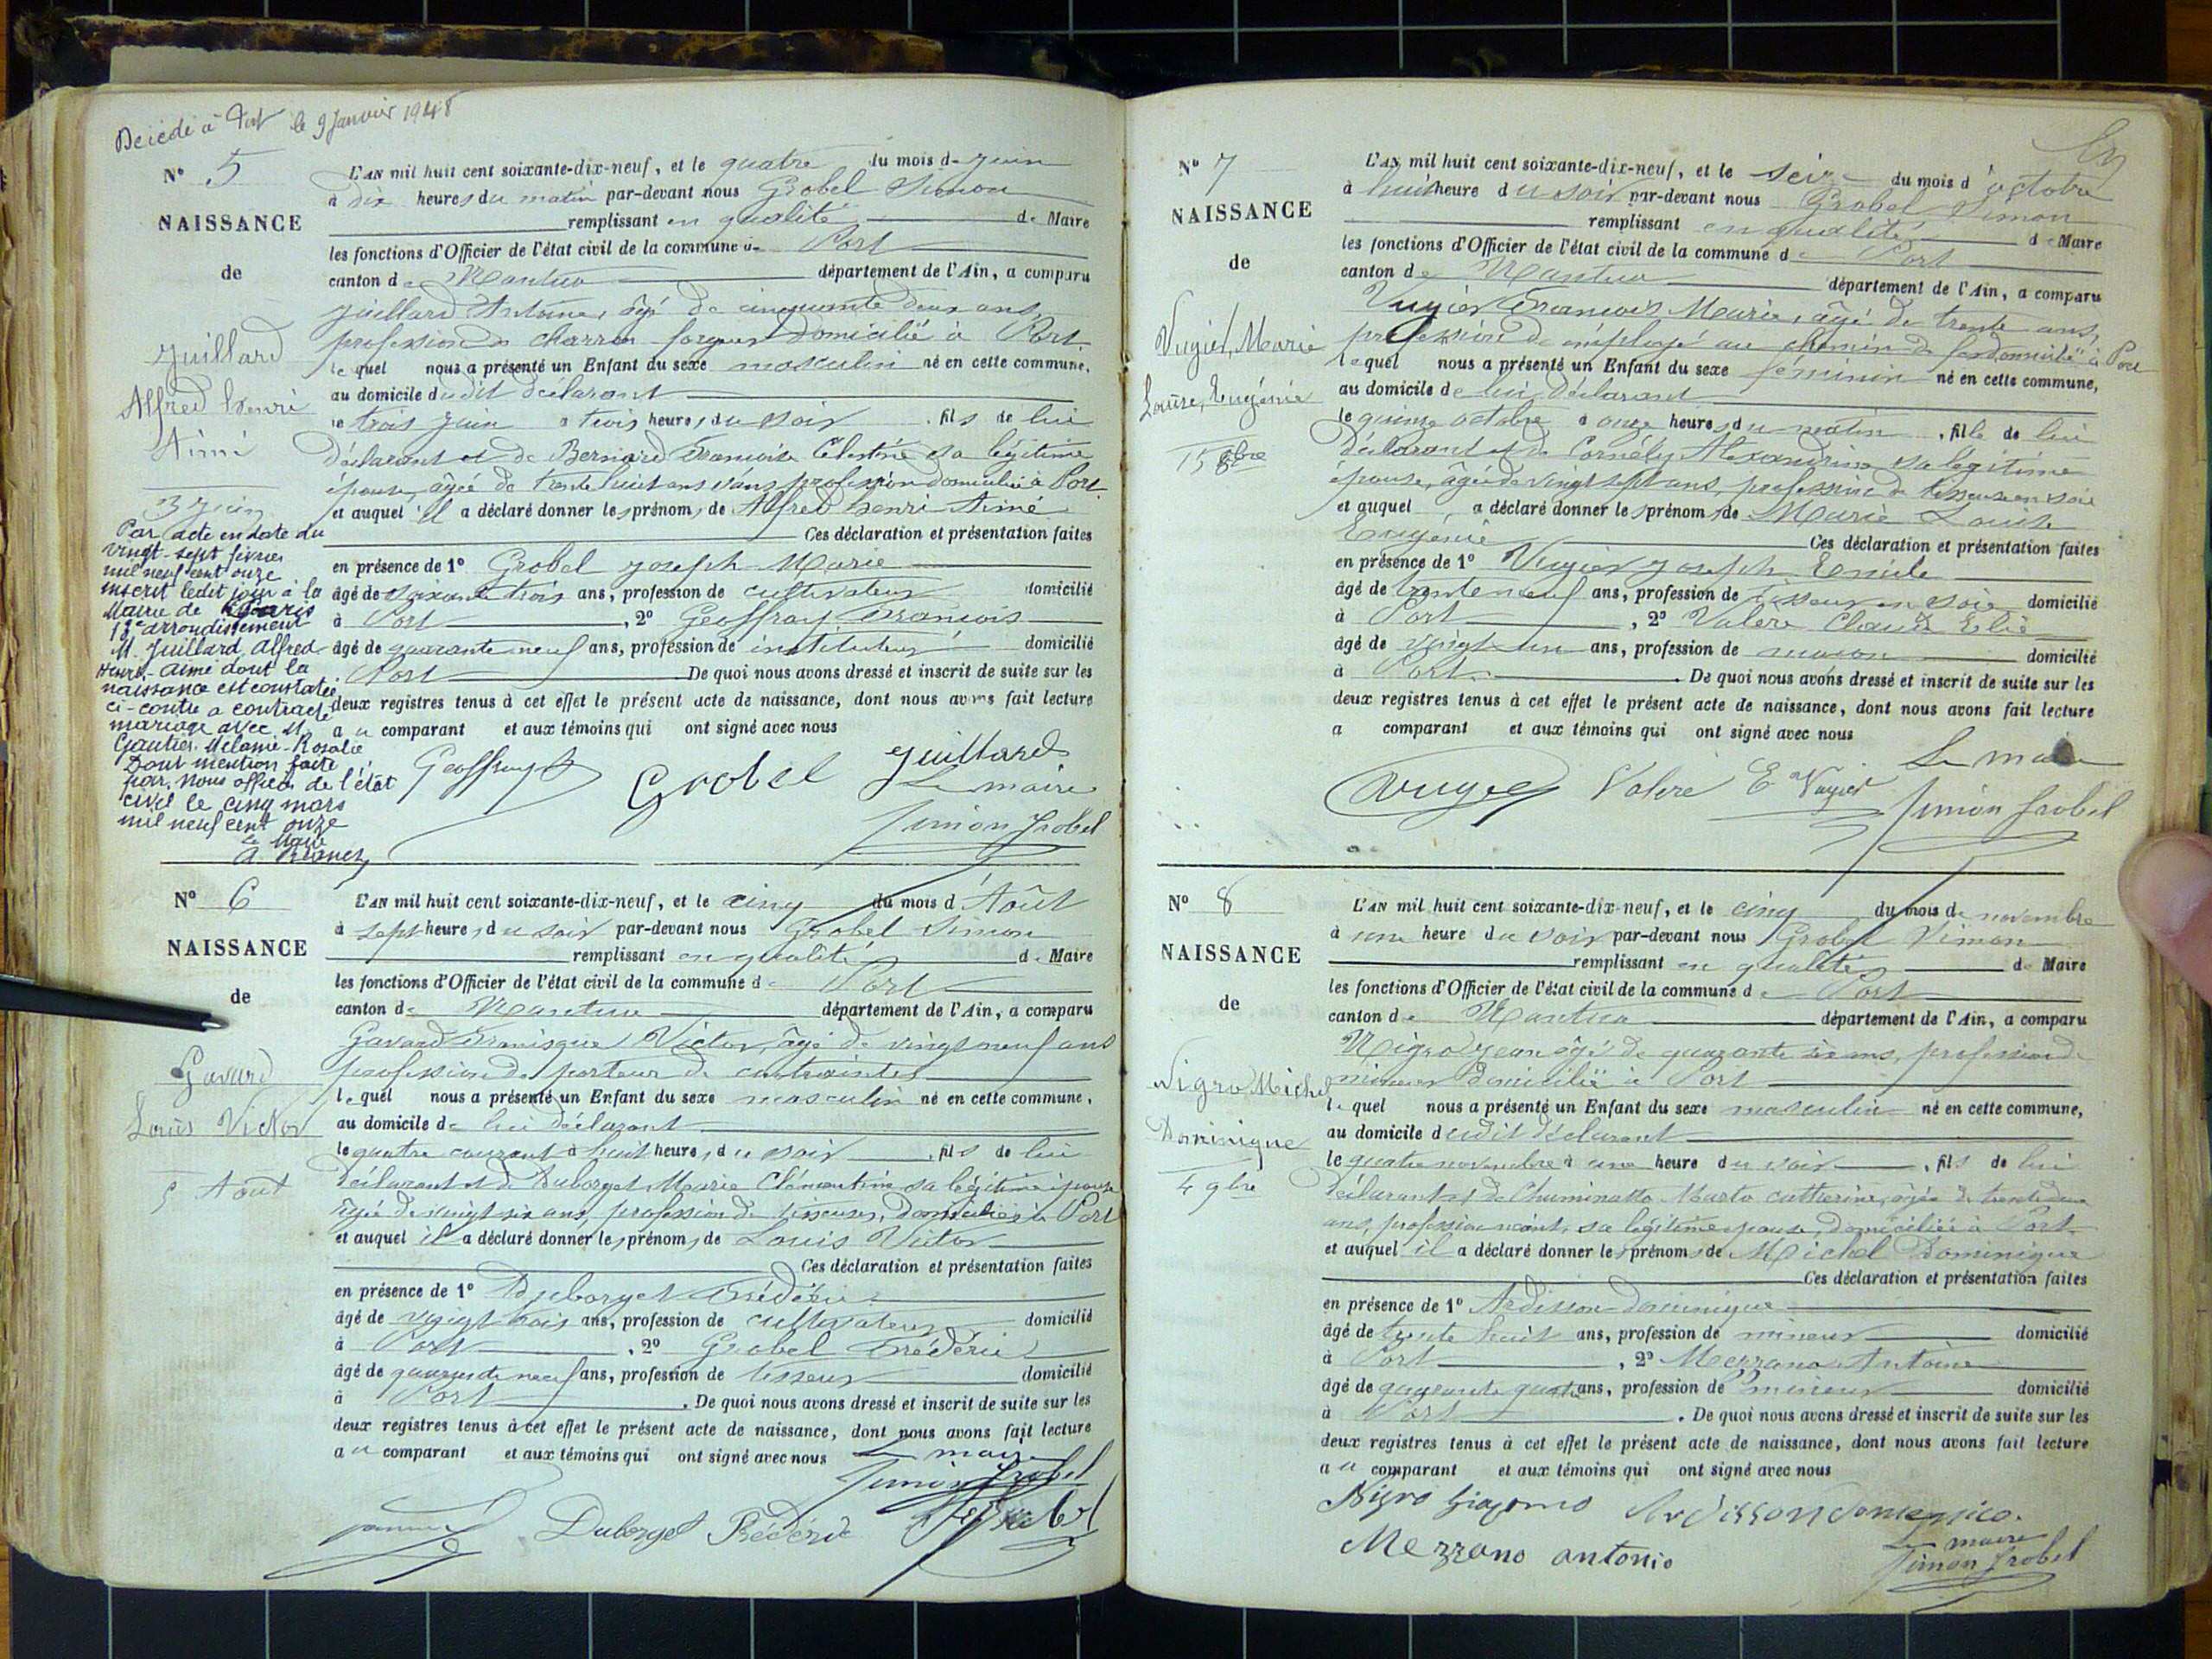 Décédé à Port le 9 Janvier 1948
N° 5
NAISSANCE
de
Juillard
Alfred henri
Aimé
3 Juin
Par acte en date du
vingt-sept février
mil neuf cent onze
inscrit ledit jour à la
Mairie de Paris
13e arrondissement
M. Juillard Alfred
Henri-Aimé dont la
naissance est constatée
ci-contre a contracté
mariage avec
Gautier Mélanie-Rosalie
Dont mention faite
par nous officier de l'état
civil le cinq mars
mil neuf cent onze
Le Maire
L'AN mil huit cent soixante-dix-neuf, et le quatre du mois de Juin
à dix heures du matin par-devant nous Grobel Simon
remplissant en qualité de Maire
les fonctions d'Officier de l'état civil de la commune de Port
canton de Nantua département de l'Ain, a comparu
Juillard Antoine, âgé de cinquante deux ans,
profession de charron forgeur domicilié à Port
lequel nous a présenté un Enfant du sexe masculin né en cette commune,
au domicile dudit déclarant
le trois Juin à trois heures du soir, fils de lui
déclarant et de Bernard Françoise Célestine sa légitime
épouse, âgée de trente huit ans sans profession domiciliée à Port
et auquel il a déclaré donner les prénoms de Alfred henri Aimé
Ces déclaration et présentation faites
en présence de 1° Grobel Joseph Marie
âgé de soixante trois ans, profession de cultivateur domicilié
à Port, 2° Geoffray François
âgé de quarante neuf ans, profession de instituteur domicilié
à Port De quoi nous avons dressé et inscrit de suite sur les
deux registres tenus à cet effet le présent acte de naissance, dont nous avons fait lecture
au comparant et aux témoins qui ont signé avec nous
Geoffray Grobel Juillard
Le maire
Simon Grobel
N° 6
NAISSANCE
de
Gavard
Louis Victor
5 Août
L'AN mil huit cent soixante-dix-neuf, et le cinq du mois d'Août
à sept heures du soir par-devant nous Grobel Simon
remplissant en qualité de Maire
les fonctions d'Officier de l'état civil de la commune de Port
canton de Nantua département de l'Ain, a comparu
Gavard Francisque Victor, âgé de vingt neuf ans
profession de porteur de contraintes
lequel nous a présenté un Enfant du sexe masculin né en cette commune,
au domicile de lui déclarant
le quatre courant à huit heures du soir, fils de lui
déclarant et de Duborget Marie Clémentine sa légitime épouse
âgée de vingt six ans, profession de tisseuse, domiciliés à Port
et auquel il a déclaré donner les prénoms de Louis Victor
Ces déclaration et présentation faites
en présence de 1° Duborget Frédéric
âgé de vingt trois ans, profession de cultivateur domicilié
à Port, 2° Grobel Frédéric
âgé de quarante neuf ans, profession de tisseur domicilié
à Port. De quoi nous avons dressé et inscrit de suite sur les
deux registres tenus à cet effet le présent acte de naissance, dont nous avons fait lecture
au comparant et aux témoins qui ont signé avec nous
Le maire
Simon Grobel
Duborget Frédéric
N° 7
NAISSANCE
de
Vugier, Marie
Louise, Eugénie
15 8bre
L'AN mil huit cent soixante-dix-neuf, et le seize du mois d'octobre
à huit heure du soir par-devant nous Grobel Simon
remplissant en qualité de Maire
les fonctions d'Officier de l'état civil de la commune de Port
canton de Nantua département de l'Ain, a comparu
Vugier François Marie, âgé de trente ans,
profession de employé au chemin de fer domicilié à Port
lequel nous a présenté un Enfant du sexe féminin né en cette commune,
au domicile de lui déclarant
le quinze octobre à onze heures du matin, fille de lui
déclarant et de Cornély Alexandrine sa légitime
épouse, âgée de vingt sept ans, profession de tisseuse en soie
et auquel a déclaré donner les prénoms de Marie Louise
Eugénie Ces déclaration et présentation faites
en présence de 1° Vugier Joseph Emile
âgé de trente neuf ans, profession de tisseur en soie domicilié
à Port, 2° Valère Claude Elie
âgé de vingt un ans, profession de maçon domicilié
à Port. De quoi nous avons dressé et inscrit de suite sur les
deux registres tenus à cet effet le présent acte de naissance, dont nous avons fait lecture
a comparant et aux témoins qui ont signé avec nous
Le maire
Vugier Valère E Vugier Simon Grobel
N° 8
NAISSANCE
de
Nigro Michel
Dominique
4 9bre
L'AN mil huit cent soixante-dix-neuf, et le cinq du mois de novembre
à une heure du soir par-devant nous Grobel Simon
remplissant en qualité de Maire
les fonctions d'Officier de l'état civil de la commune de Port
canton de Nantua département de l'Ain, a comparu
Nigro Jean âgé de quarante six ans, profession de
mineur domicilié à Port
lequel nous a présenté un Enfant du sexe masculin né en cette commune,
au domicile dudit déclarant
le quatre novembre à une heure du soir, fils de lui
déclarant et de Chuminatto Marto catherine, âgée de trente deux
ans, profession néant, sa légitime épouse, domiciliée à Port
et auquel il a déclaré donner les prénoms de Michel Dominique
Ces déclaration et présentation faites
en présence de 1° Ardisson Dominique
âgé de trente huit ans, profession de mineur domicilié
à Port, 2° Mezzano Antoine
âgé de quarante quatre ans, profession de mineur domicilié
à Port. De quoi nous avons dressé et inscrit de suite sur les
deux registres tenus à cet effet le présent acte de naissance, dont nous avons fait lecture
au comparant et aux témoins qui ont signé avec nous
Nigro Giagomo Ardisson Domenico.
Mezzano antonio
Le maire
Simon Grobel